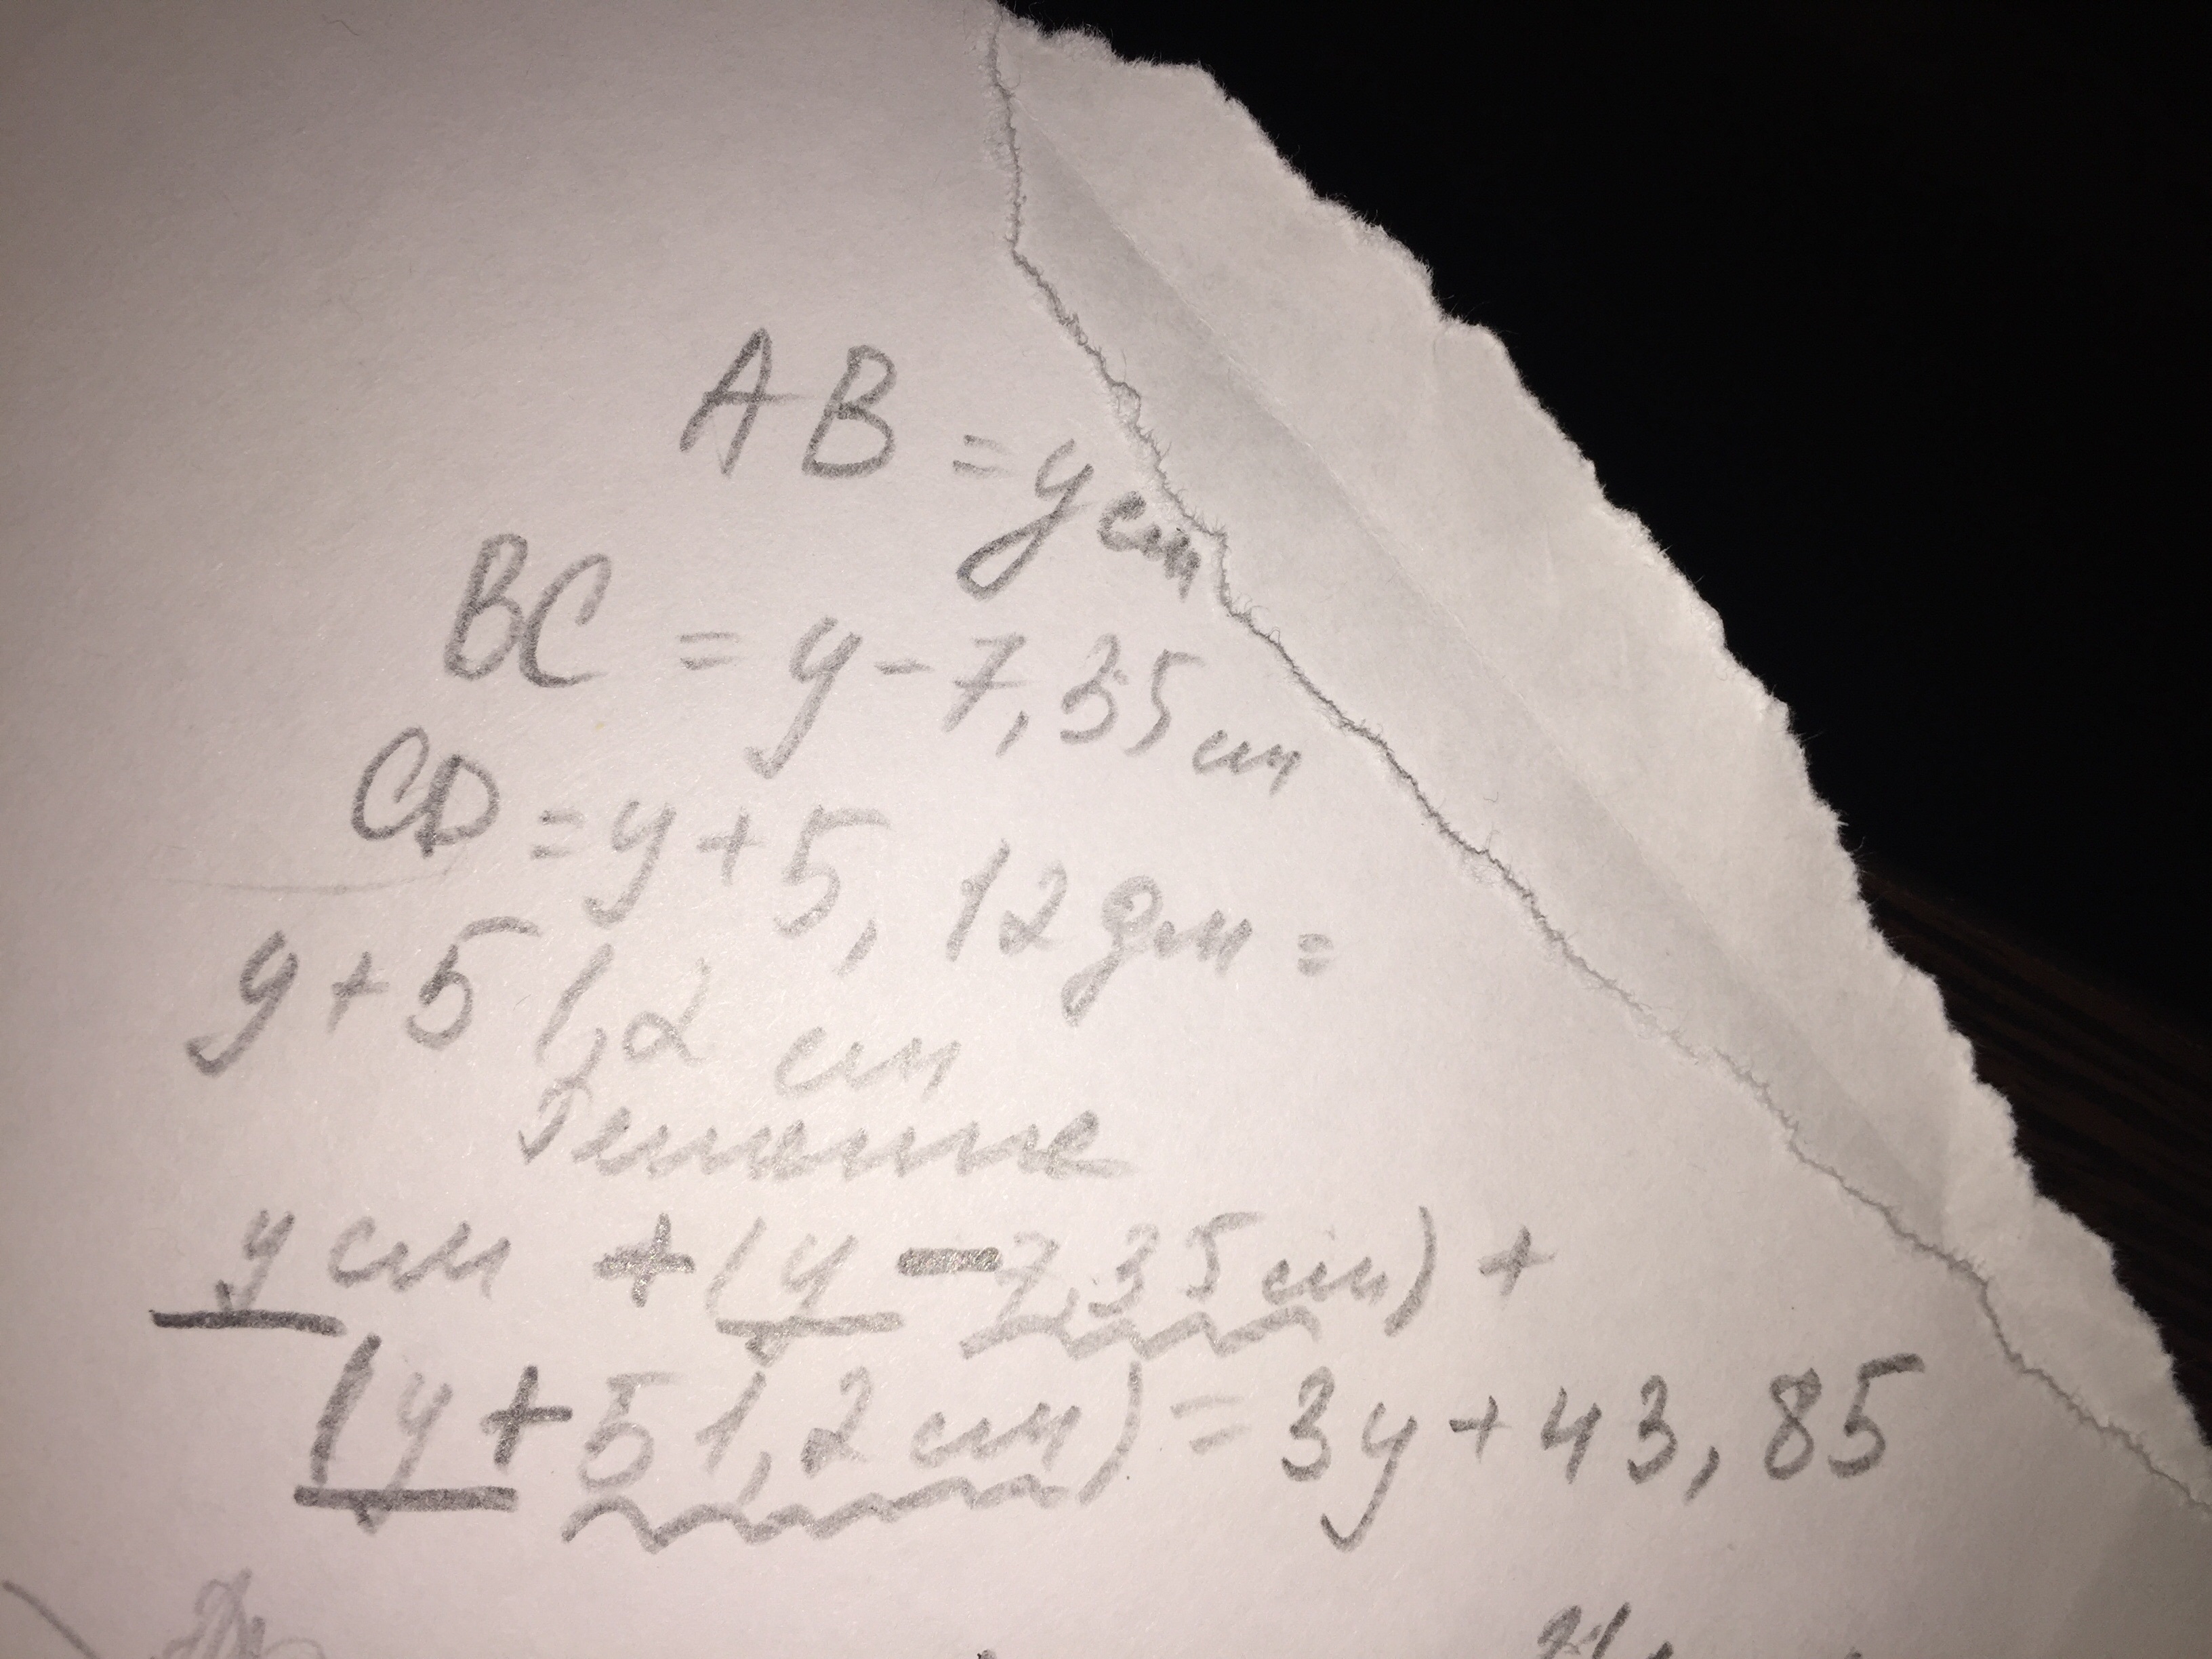 AB = y см
BC = y - 7,35 см
CD = y + 5,12 дм =
y + 51,2 см
Решение
y см + (y - 7,35 см) +
(y + 51,2 см) = 3y + 43,85